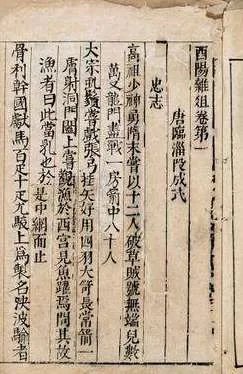 酉陽雜俎卷第一
唐臨淄段成式
忠志
高祖少神勇隋末嘗以十二人破草賊號無端兒數
萬又龍門戰盡一房箭中八十人
太宗虬鬚嘗戲張弓挂矢好用四羽大箭長常箭一
膚射洞門闔上嘗觀漁於西宮見魚躍焉問其故
漁者曰此當乳也於是中網而止
骨利幹國獻馬百疋十疋尤駿上爲製名决波騟者